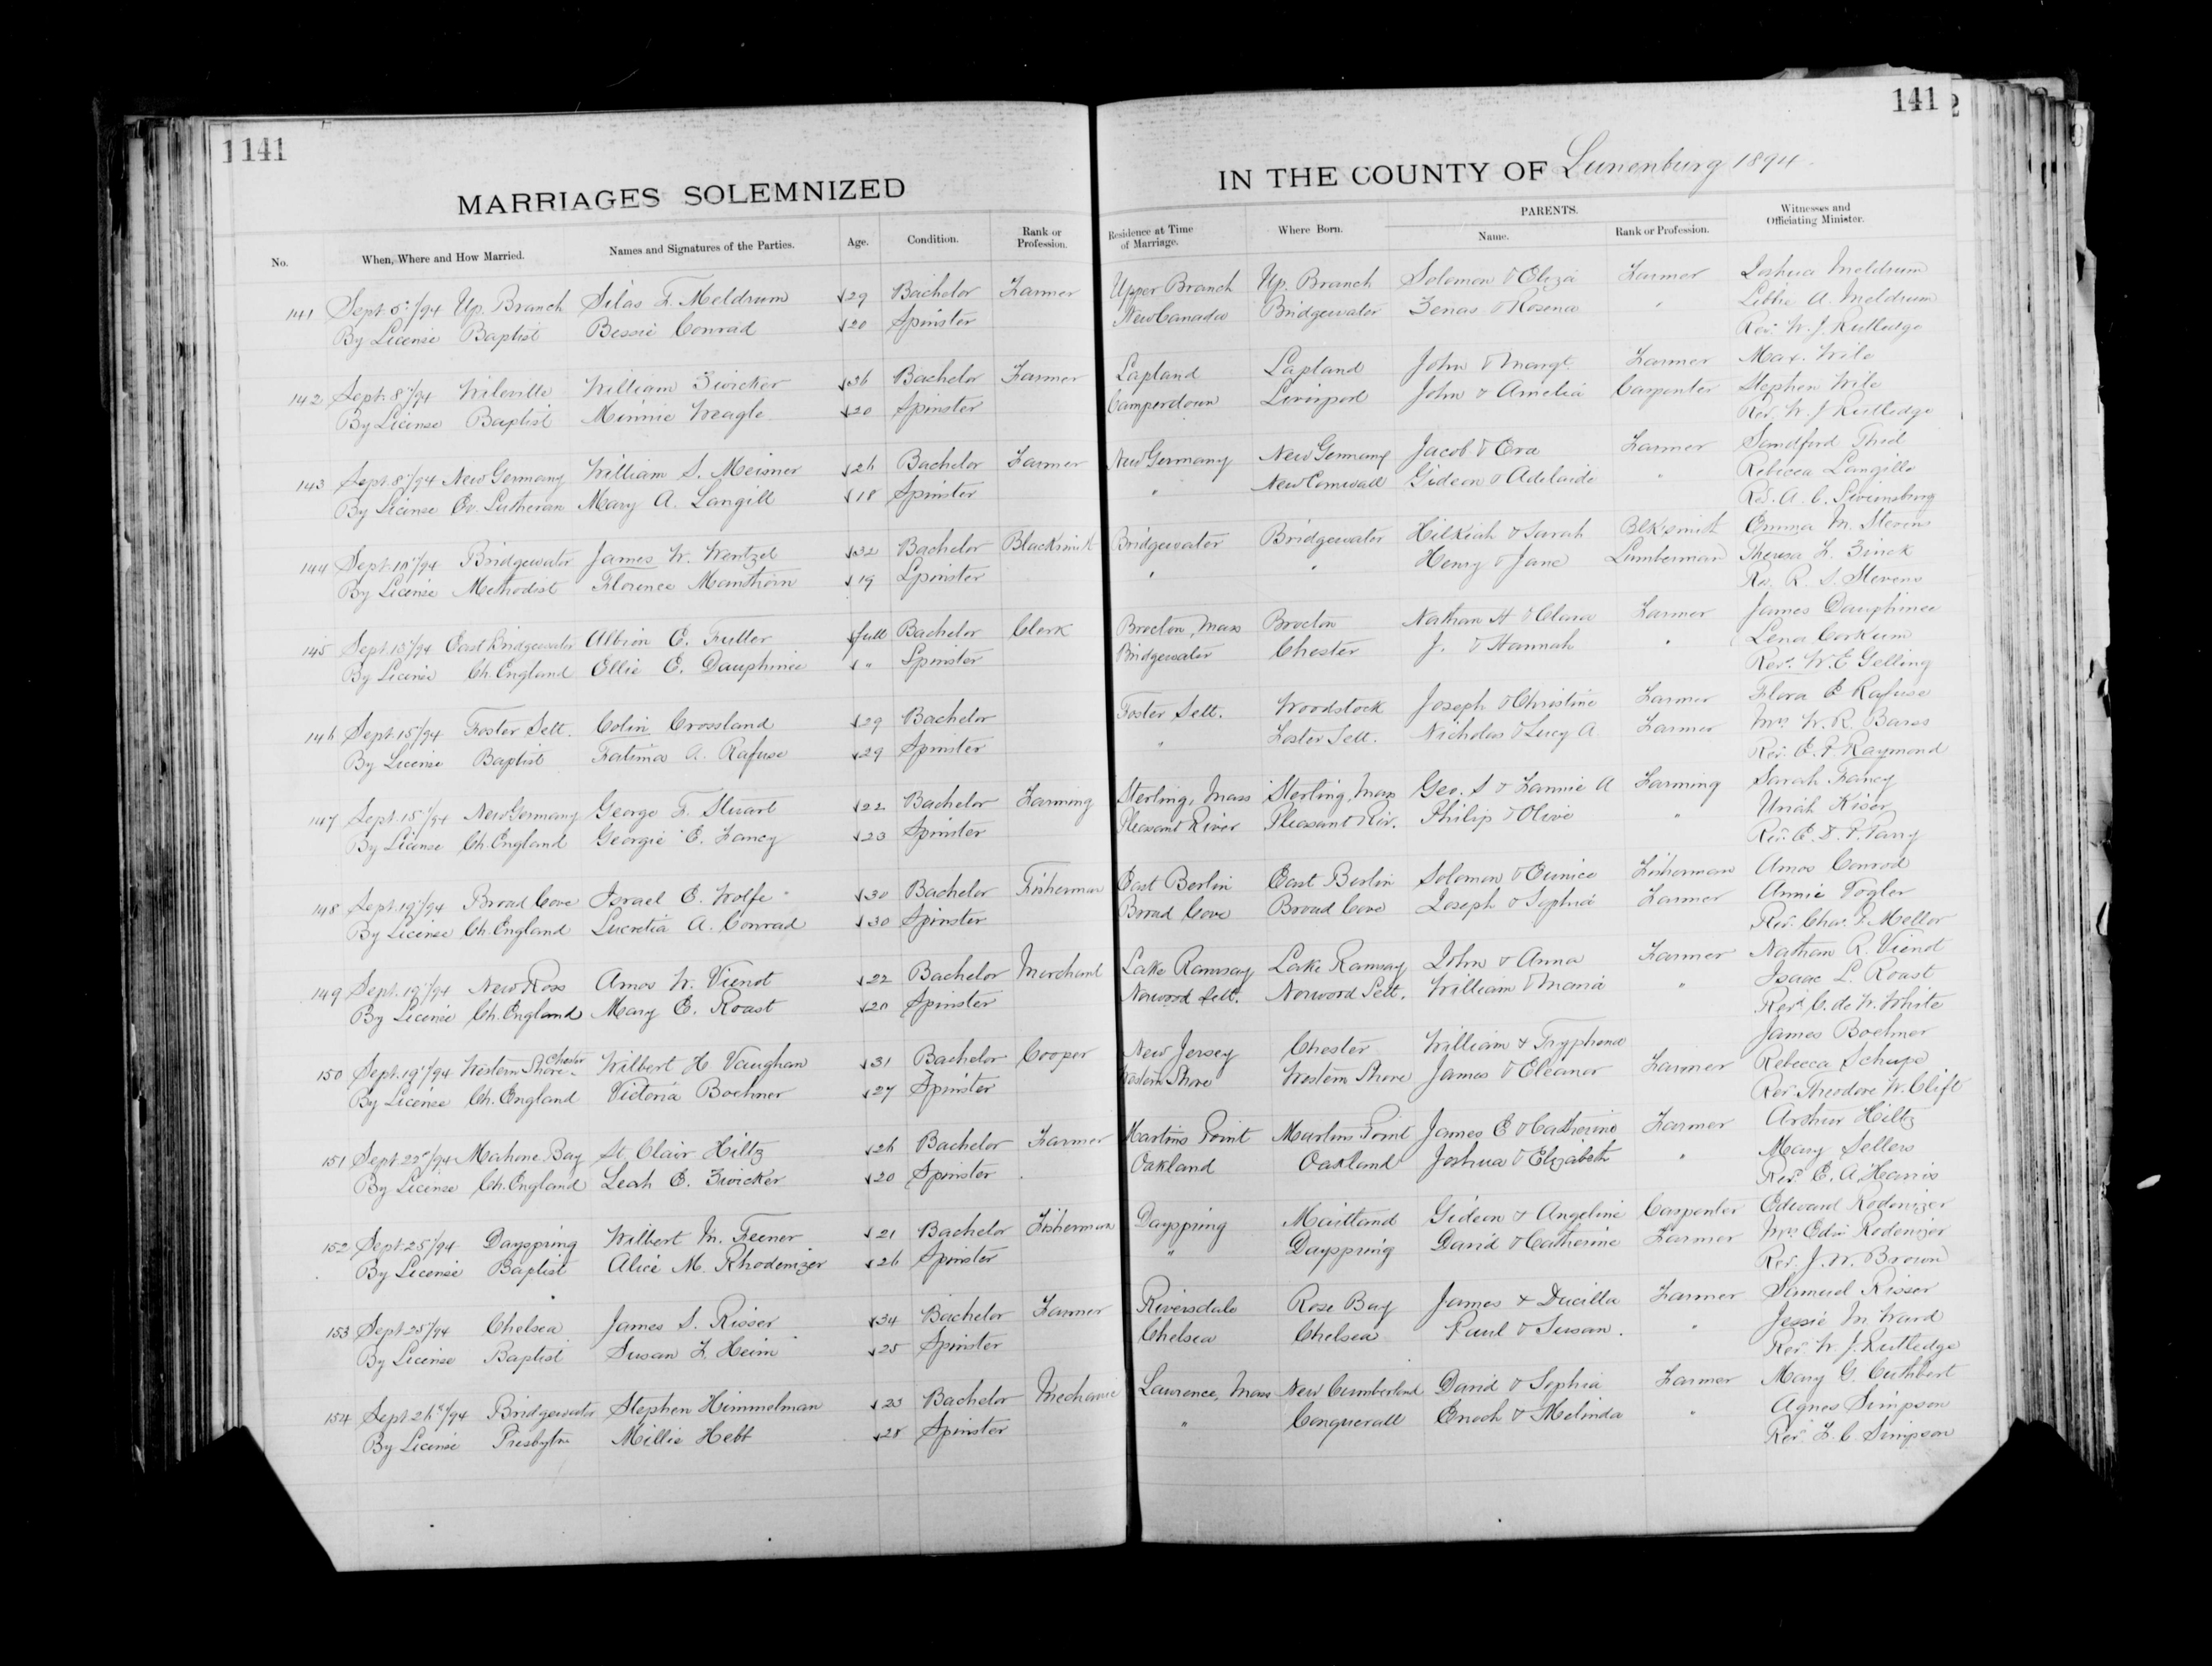 1141
141
MARRIAGES SOLEMNIZED IN THE COUNTY OF Lunenburg 1894
No. When, Where and How Married. Names and Signatures of the Parties. Age. Condition. Rank or Profession. Residence at Time of Marriage. Where Born. PARENTS. Name. Rank or Profession. Witnesses and Officiating Minister.
141 Sept 5"/94 Up. Branch Silas F. Meldrum 29 Bachelor Farmer Upper Branch Up. Branch Solomon & Eliza Farmer Joshua Meldrum
By License Baptist Bessie Conrad 20 Spinster New Canada Bridgewater Zenas & Rosena " Libbie A. Meldrum
Rev. W. J. Rutledge
142 Sept. 8"/94 Wileville William Zwicker 36 Bachelor Farmer Lapland Lapland John & Margt. Farmer Max. Wile
By License Baptist Minnie Weagle 20 Spinster Camperdown Liverpool John & Amelia Carpenter Stephen Wile
Rev. W. J. Rutledge
143 Sept. 8"/94 New Germany William S. Meisner 26 Bachelor Farmer New Germany New Germany Jacob & Farmer Sandford
By License Ev. Lutheran Mary A. Langill 18 Spinster " New Cornwall Gideon & Adelaide " Rebecca Langille
Rev. A. C.
144 Sept. 10"/94 Bridgewater James W. Wentzel 32 Bachelor Blacksmith Bridgewater Bridgewater Hilkiah & Sarah Blksmith Emma M. Stevens
By License Methodist Florence Manthorn 19 Spinster " " Henry & Jane Lumberman Theresa L. Zinck
Rev. R. S. Stevens
145 Sept. 15"/94 East Bridgewater Albion E. Fuller full Bachelor Clerk Brocton, Mass Brocton Nathan H & Clara Farmer James Dauphinee
By License Ch. England Ellie E. Dauphinee " Spinster Bridgewater Chester J. & Hannah " Lena Corkum
Rev. W. E Gelling
146 Sept. 15"/94 Foster Sett. Colin Crossland 29 Bachelor Foster Sett. Woodstock Joseph & Christine Farmer Flora E Rafuse
By License Baptist Fatima A. Rafuse 29 Spinster " Foster Sett. Nicholas & Lucy A. Farmer Mrs W. R. Barss
Rev. E. P. Raymond
147 Sept. 15"/94 New Germany George F. Stuart 22 Bachelor Farming Sterling, Mass Sterling, Mass Geo. S & Fannie A Farming Sarah Fancy
By License Ch. England Georgie E. Fancy 23 Spinster Pleasant River Pleasant Riv. Philip & Olive " Uriah Kiser
Rev. E. D. P. Parry
148 Sept. 19"/94 Broad Cove Israel E. Wolfe 30 Bachelor Fisherman East Berlin East Berlin Solomon & Eunice Fisherman Amos Conrod
By License Ch. England Lucretia A. Conrad 30 Spinster Broad Cove Broad Cove Joseph & Sophia Farmer Annie Vogler
Rev. Chas. P. Mellor
149 Sept. 19"/94 New Ross Amos W. Vienot 22 Bachelor Merchant Lake Ramsay Lake Ramsay John & Anna Farmer Nathan R. Vienot
By License Ch. England Mary E. Roast 20 Spinster Norwood Sett. Norwood Sett. William & Maria " Isaac L. Roast
Rev. C. de W. White
150 Sept. 19"/94 Western Shore Chester Wilbert H Vaughan 31 Bachelor Cooper New Jersey Chester William & Tryphena James Boehner
By License Ch. England Victoria Boehner 27 Spinster Western Shore Western Shore James & Eleanor Farmer Rebecca
Rev. Theodore W. Clift
151 Sept. 22"/94 Mahone Bay St. Clair Hiltz 26 Bachelor Farmer Martins Point Martins Point James E & Catherine Farmer Arthur Hiltz
By License Ch. England Leah E. Zwicker 20 Spinster Oakland Oakland Joshua & Elizabeth " Mary Sellers
Rev. E. A. Harris
152 Sept. 25"/94 Dayspring Wilbert M. Feener 21 Bachelor Fisherman Dayspring Maitland Gideon & Angeline Carpenter Edward Rodenizer
By License Baptist Alice M. Rhodenizer 26 Spinster " Dayspring David & Catherine Farmer Mrs Edw Rodenizer
Rev. J. W. Brown
153 Sept. 25"/94 Chelsea James S. Risser 34 Bachelor Farmer Riversdale Rose Bay James & Farmer Samuel Risser
By License Baptist Susan L. Heim 25 Spinster Chelsea Chelsea Paul & Susan. " Jessie M. Ward
Rev. W. J. Rutledge
154 Sept. 26"/94 Bridgewater Stephen Himmelman 23 Bachelor Mechanic Lawrence, Mass New Cumberland David & Sophia Farmer Mary G. Cuthbert
By License Presbytn Millie Hebb 28 Spinster " Conquerall Enoch & Melinda " Agnes Simpson
Rev. F. C. Simpson